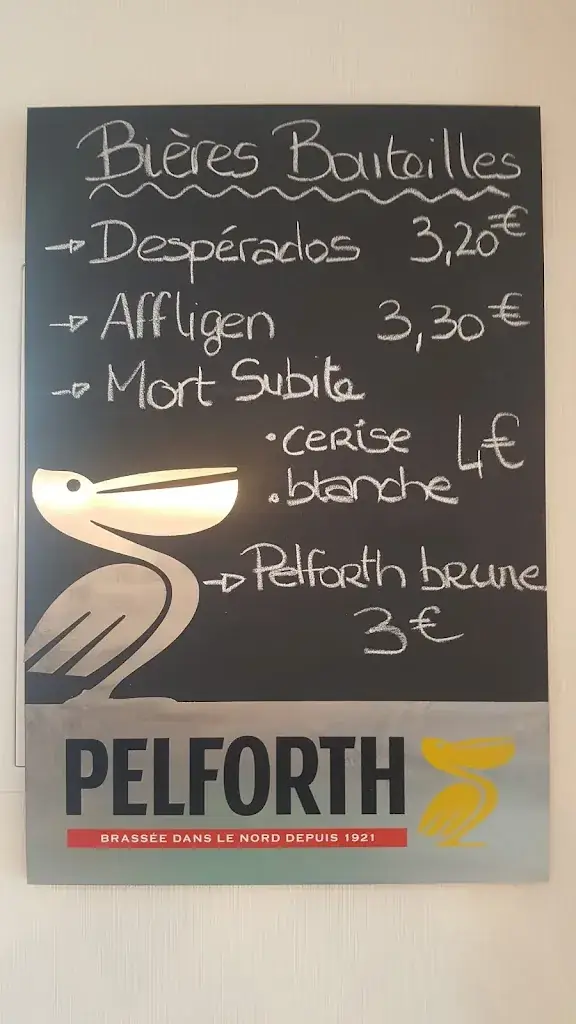 Bières Bouteilles
→ Despérados 3,20€
→ Affligen 3,30€
→ Mort Subite
• cerise 4€
• blanche
→ Pelforth brune
3€
PELFORTH
BRASSÉE DANS LE NORD DEPUIS 1921